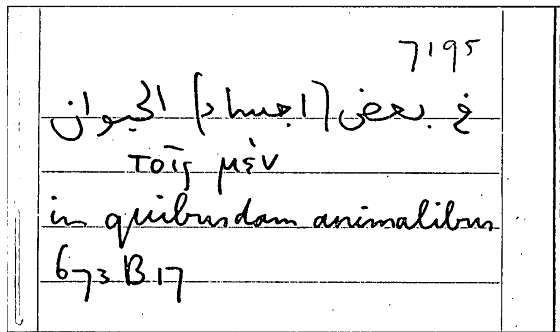 7195
في بعض (اجساد) الحيوان
τοῖς μὲν
in quibusdam animalibus
673 B 17